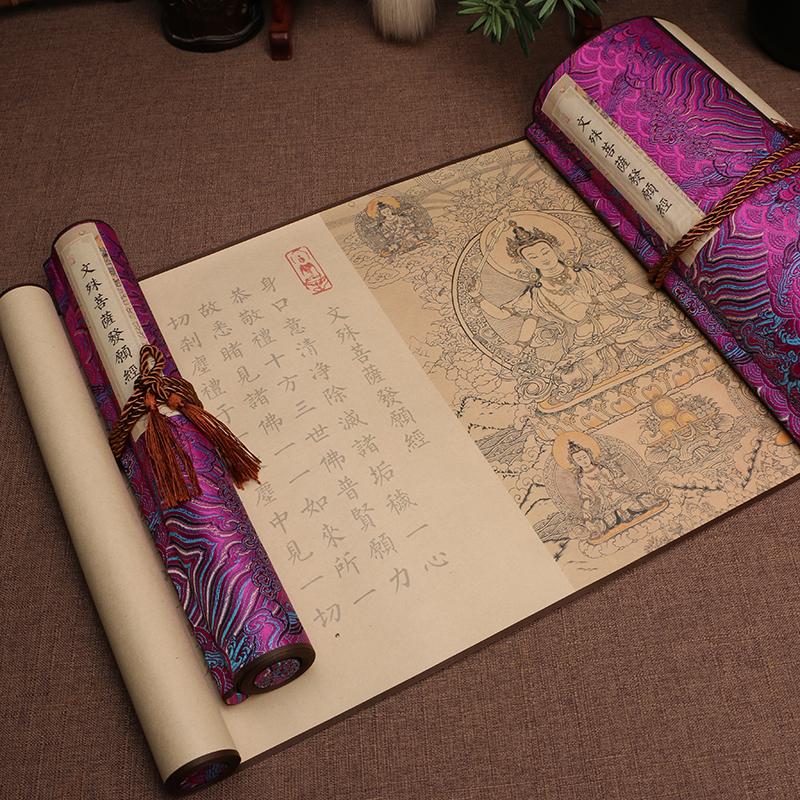 文殊菩薩發願經
文殊菩薩發願經
身口意清净除滅諸垢穢一心
恭敬禮十方三世佛普賢願力
故悉睹見諸佛一一如來所一
切刹塵禮于 塵中見一切
文殊菩薩發願經